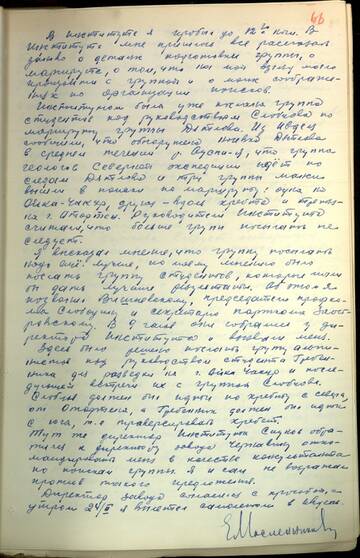 66
В Институте я пробыл до 12 час. В
Институте мне пришлось все рассказать
заново о деталях подготовки группы, о
маршруте, о том, что на мой взгляд могло
произойти с группой и о моих соображе-
ниях по организации поисков.
Институтом была уже послана группа
студентов под руководством Слобцова по
маршруту группы Дятлова. Из Ивделя
сообщили, что обнаружена лыжня Дятлова
в среднем течении р. Ауспии, что группа
геологов Северной экспедиции идёт по
следам Дятлова и три группы манси
вышли в поиски по маршруту: одна на
Ойка-Чакур, другая – вдоль хребта и третья
на г. Отортен. Руководители Института
считали, что больше групп посылать не
следует.
Я высказал мнение, что группу посылать
надо ещё лучше, по моему мнению было
послать группу студентов, которые
бы дать лучшие результаты. Об этом я
позвонил Вишневскому, председателю профко-
ма Слободину и секретарю парткома Заост-
ровскому. В 9 часов они собрались у ди-
ректора Института и вызвали меня.
Здесь было решено послать группу альпи-
нистов под руководством студента Гребе-
ника для разведки на г. Ойка Чакур и после-
дующей встречи их с группой Слобцова.
Слобцов должен был идти по хребту с севера,
от Отортена, а Гребенник должен был идти
с юга, т.е. траверсировать хребет.
Тут же директор Института Сиунов обра-
тился к директору завода Чернавину отко-
мандировать меня в качестве консультанта
по поискам группы. Я и сам не возражал
против такого предложения.
Директор завода согласился с просьбой, и
утром 24/II я вылетел самолетом в Ивдель.
Е Масленников